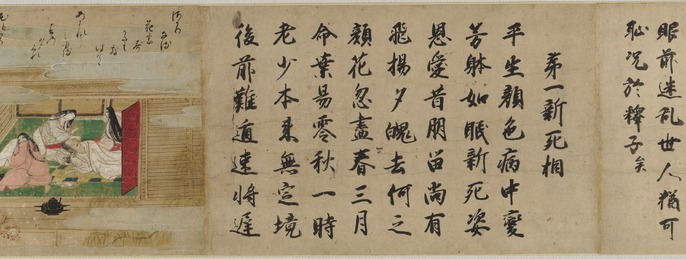 眼前迷乱世人猶可
恥况於釋子矣
第一新死相
平生顔色病中變
芳躰如眠新死姿
恩愛昔朋留尚有
飛揚夕魄去何之
顔花忽盡春三月
命葉易零秋一時
老少本来無定境
後前難遁速将遲